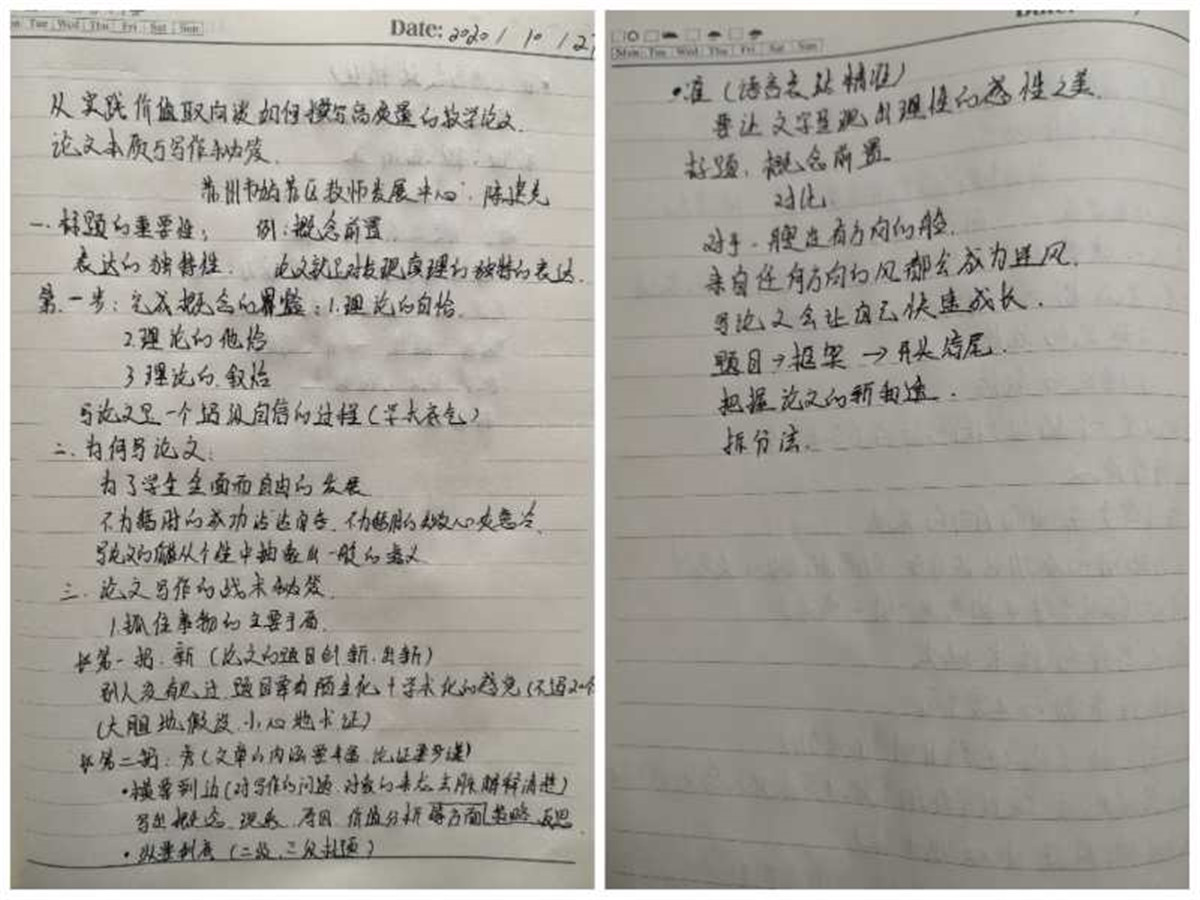 Tue Wed Thu Fri Sat Sun
Date: 2020 / 10 / 27
从实践价值取向谈如何撰写高质量的教学论文.
论文本质与写作秘笈.
苏州市姑苏区教师发展中心: 陈建先
一. 标题的重要性; 例:概念前置.
表达的独特性. 论文就是对发现真理的独特的表达.
第一步:完成概念的界定:1.理论的自恰.
2.理论的他恰
3.理论的叙恰
写论文是一个超级自信的过程(学术底气)
二. 为何写论文:
为了学生全面而自由的发展
不为暂时的成功沾沾自喜、不为暂时的失败心灰意冷
写论文的能从个性中抽象出一般的意义.
三. 论文写作的战术秘笈.
1.抓住事物的主要矛盾.
第一招.新(论文的题目创新.出新)
别人没有见过.题目要有陌生化+学术化的感觉(不超20个
(大胆地假设.小心地求证)
第二招:(文章的内涵要丰富.论证要严谨)
•横要到边(对写作的问题.对象的来龙去脉.解释清楚)
写出概念.现象.原因.价值分析等方面策略反思
•纵要到底(二级.三级标题)
Mon Tue Wed Thu Fri Sat Sun
•准(语言表达精准)
要让文字呈现出理性的感性之美.
标题:概念前置
对比.
对于一艘没有方向的船.
来自任何方向的风都会成为逆风.
写论文会让自己快速成长.
题目→框架→开头结尾.
把握论文的新和透.
拆分法.